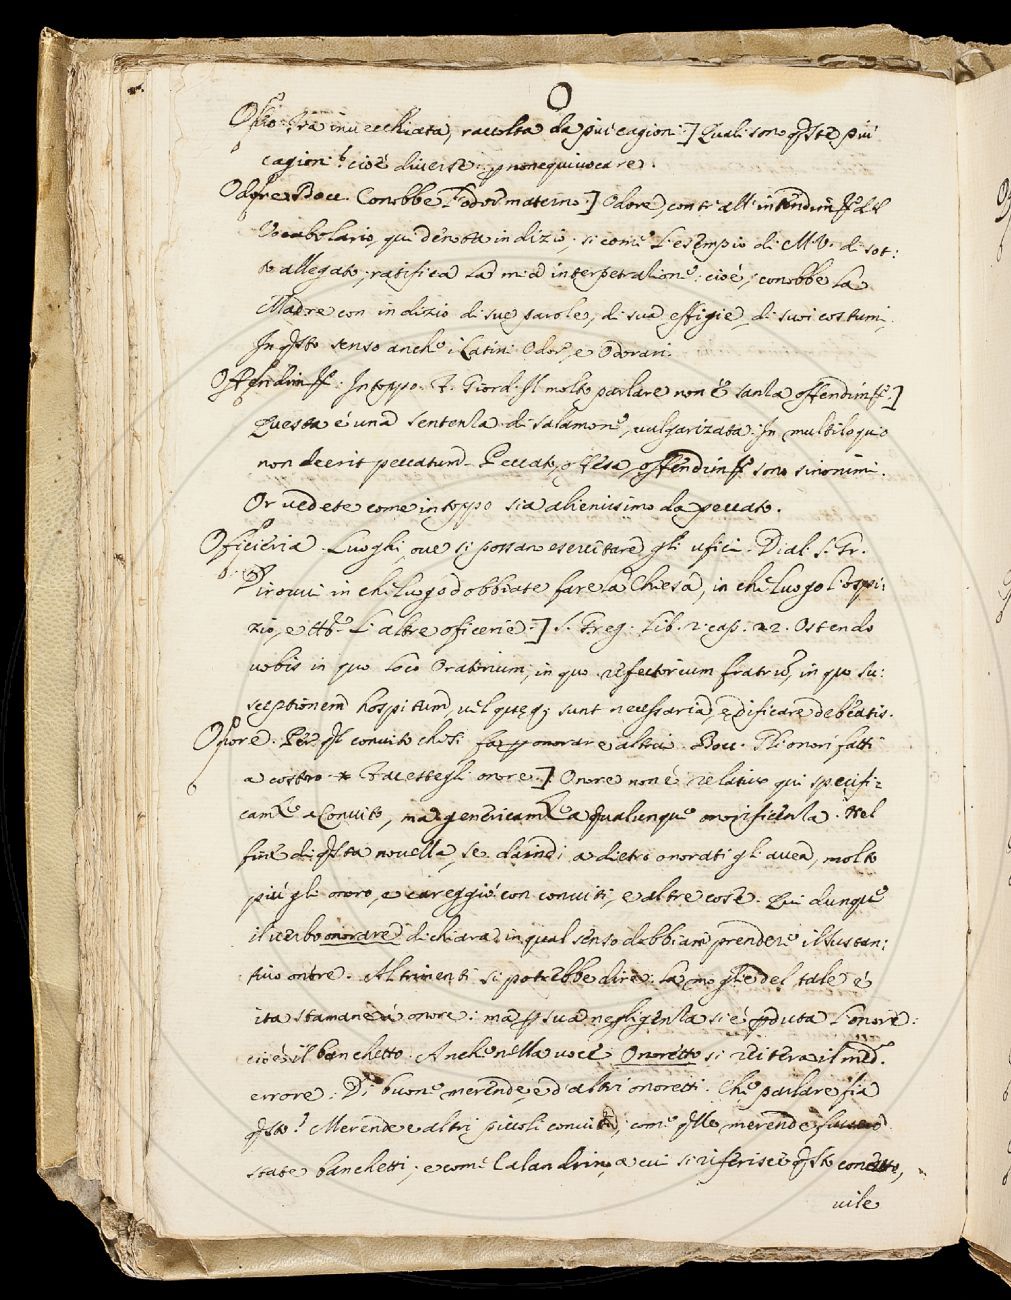 O
Odio. Ira invecchiata, raccolta da più cagioni.] Quali sono q̃ste più
cagioni? cioè diverse: p̱ non equivocare.
Odore. Bocc. Conobbe l'odor materno.] Odore, contr'all'intendim.to del
Vocabolario, qui denota indizio. si come l'esempio di M.V. di sot:
to allegato, ratifica la mia interpetralione: cioè, conobbe la
Madre con indizio di sue parole, di sua effigie, di suoi costumi,
In q̃sto senso anche i Latini Odor, e Odorari.
Offendim.to: Intoppo. F. Giord. Il molto parlare non è sanla offendim.to]
Questa è una sentenla di Salamone, vulgarizata: In multiloquio
non deerit peccatum. Peccato, offesa, offendim.to sono sinonimi.
Or vedete come intoppo sia alienissimo da peccato.
Oficieria. Luoghi, ove si possano esercitare gli ufici. Dial. S. Gr.
Dirovvi in che luogo dobbiate fare la Chiesa, in che luogo l'ospi:
zio, e l'altre oficerie.] S. Greg. Lib. 2. cap. 22. Ostendo
vobis in quo loco Oratorium, in quo refectorium fratrũ, in quo su:
sceptionem hospitum, vel quęq; sunt necessaria, ędificare debeatis.
Onore. Per q̃l convito che si fa p̱ onorare altrui. Bocc. Gli onori fatti
a costoro * Facestegli onore.] Onore non è relativo qui specifi=
cam.te a Convito, ma genericam.te a qualunque onorificenla. Nel
fine di q̃sta novella, se da indi a dietro onorati gli avea, molto
più gli onorò, e careggiò con conviti, e altre cose. Qui dunque
il verbo onorare dichiara in qual senso dobbiam prendere il sustan:
tivo onore. Altrimenti si potrebbe dire: la moglie del tale è
ita stamane à onore: ma p̱ sua negligenla si è p̱duta l'onore:
cioè il banchetto. Anche nella voce Onoretto si reitera il med.o
errore: Di buone merende, e d'altri onoretti. Che parlare fia
q̃sto? Merende e altri piccoli conviti, come q̃lle merende fussero
state banchetti; e come Calandrino, a cui si riferisce q̃sto concetto,
vile